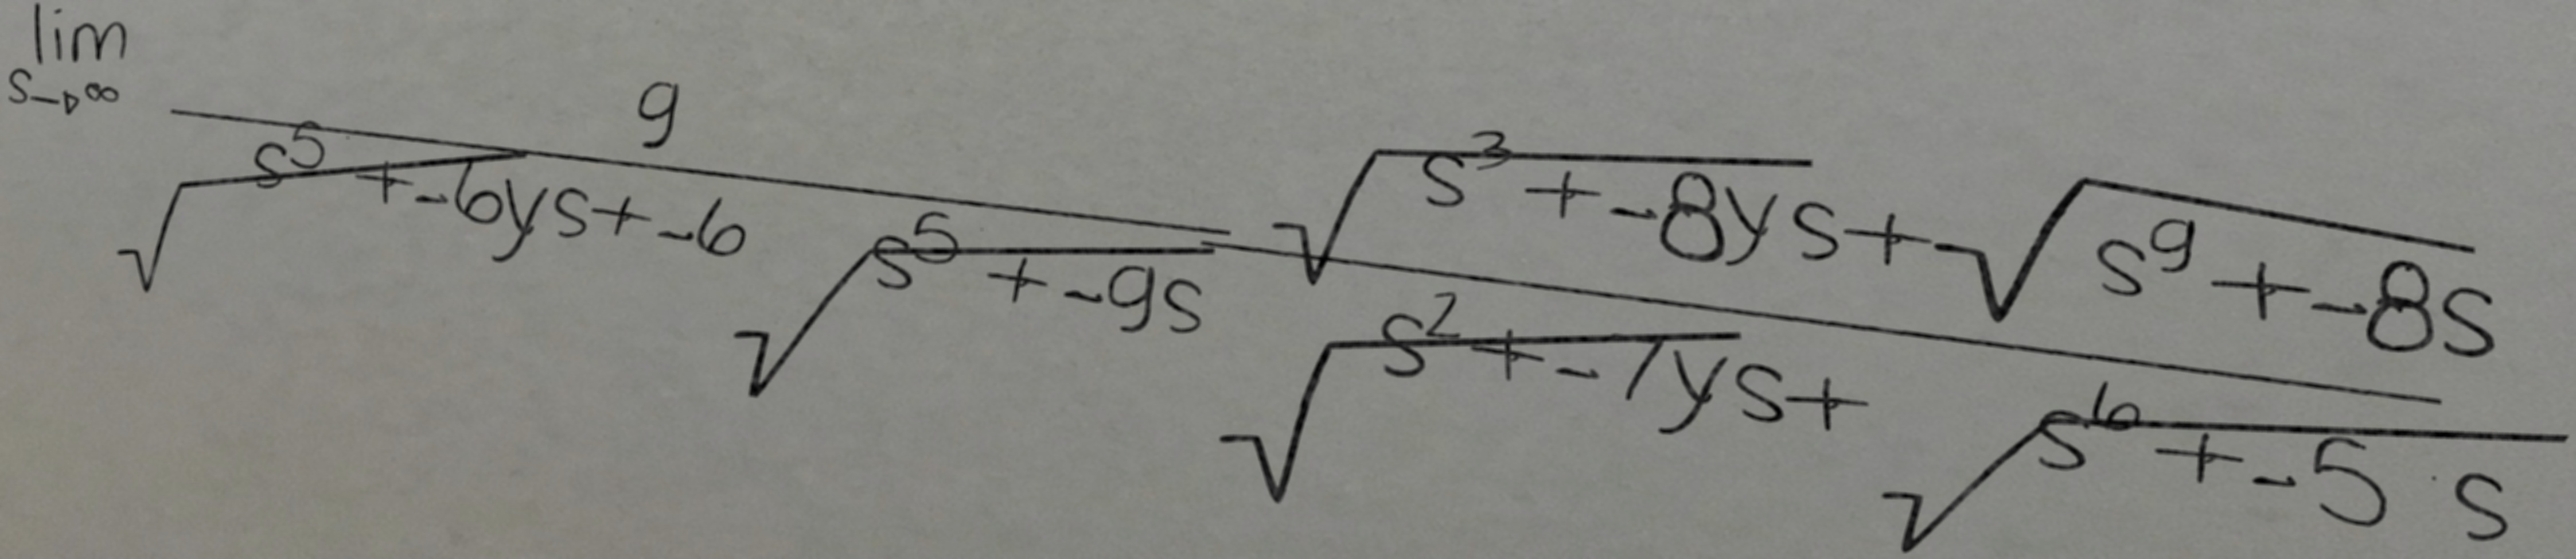 \lim_{s \to \infty} \frac{9}{\sqrt{s^5 + -6ys} + -6\sqrt{s^5 + -9s}} \frac{\sqrt{s^3 + -8ys} + -\sqrt{s^9 + -8s}}{\sqrt{s^2 + -7ys} + \sqrt{s^6 + -5s}}